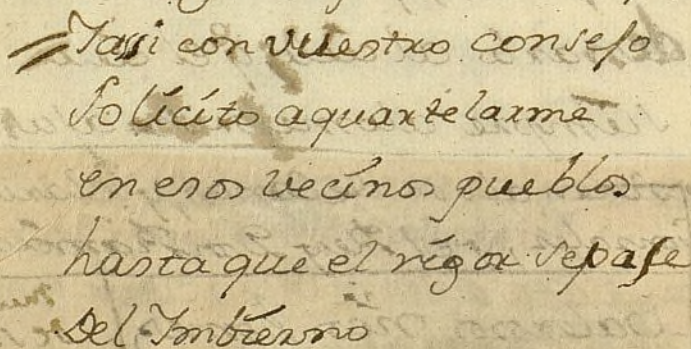 =Yassi con vuestro consejo
solicito aquartelarme
en esos vecinos pueblos
hasta que el rigor sepase
Del Imbierno